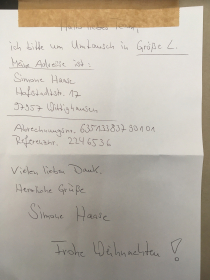 ich bitte um Umtausch in Größe L.
Meine Adresse ist:
Simone Haase
Hofstattstr. 17
97957 Wittighausen
Abrechnungsnr. 63513383730101
Referenznr. 2246536
Vielen lieben Dank.
Herzliche Grüße
Simone Haase
Frohe Weihnachten!